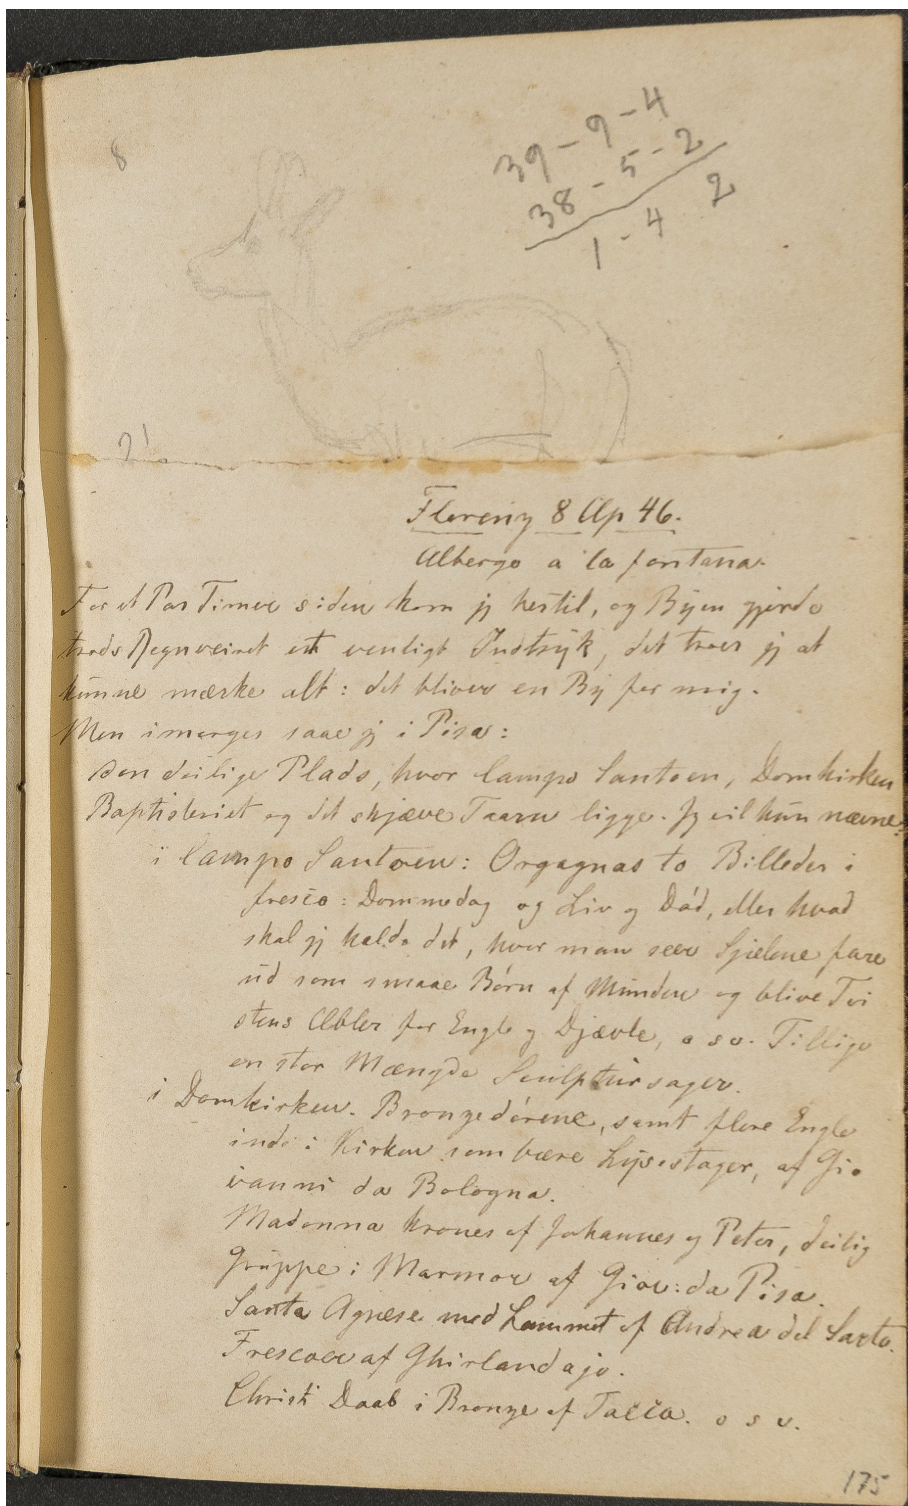 8
39-9-4
38-5-2
1-4 2
21
Florenz 8 Ap 46.
Albergo a la fontana.
For et Par Timer siden kom jg hertil, og Byen gjorde
trods Regnveiret et venligt Indtryk, det troer jg at
kunne mærke alt: det bliver en By for mig.
Men imorges saae jg i Pisa:
den deilige Plads, hvor Campo Santoen, Domkirken
Baptisteriet og det skjæve Taarn ligge. Jg vil kun nævne:
i Campo Santoen: Orgagnas to Billeder i
fresco: Dommedag og Liv og Død, eller hvad
skal jg kalde det, hvor man seer Sjælene fare
ud som smaae Børn af Munden og blive Tvi
stens Æbler for Engle og Djævle, o s v. Tillige
en stor Mængde Sculptursager.
i Domkirken. Bronzedørene, samt flere Engle
inde i Kirken som bære Lysestager, af Gio
vanni da Bologna.
Madonna krones af Johannes og Peter, deilig
Gruppe i Marmor af Giov: da Pisa.
Santa Agnese med Lammet af Andrea del Sarto.
Frescoer af Ghirlandajo.
Christi Daab i Bronze af Tacca. o s v.
175